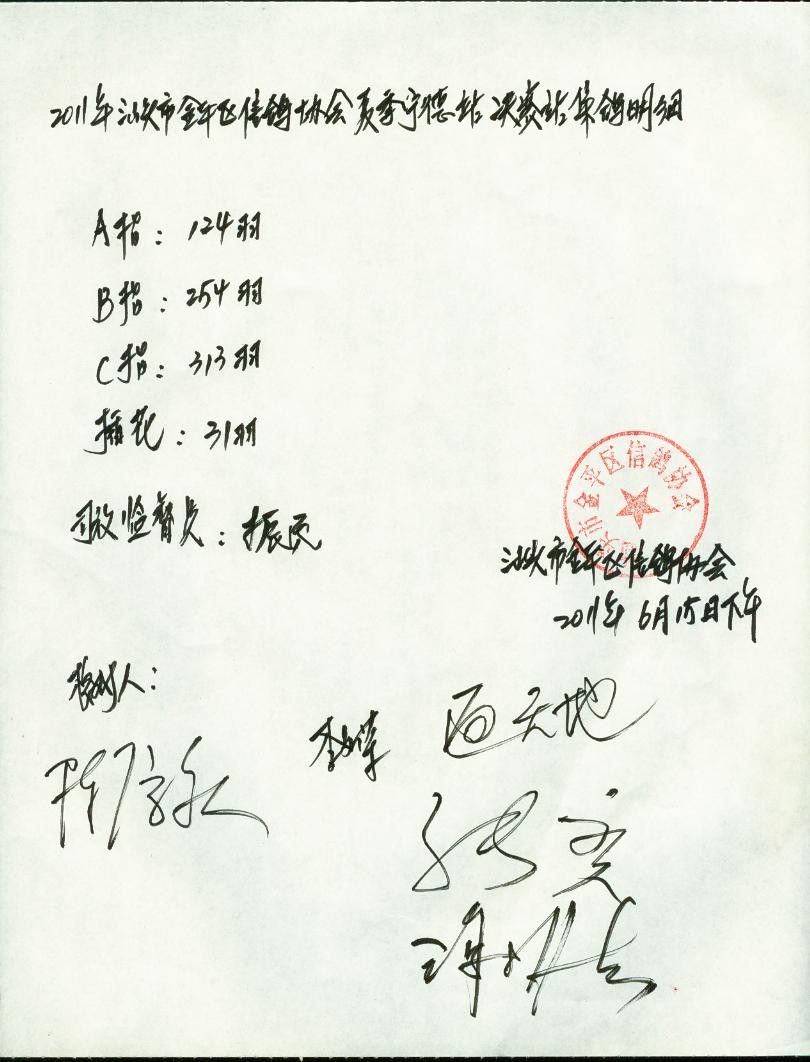 2011年汕头市金平区信鸽协会夏季宁德站决赛站集鸽明细
A指：124羽
B指：254羽
C指：313羽
插花：31羽
司放监督员：振民
汕头市金平区信鸽协会
汕头市金平区信鸽协会
2011年6月15日下午
人：
天地